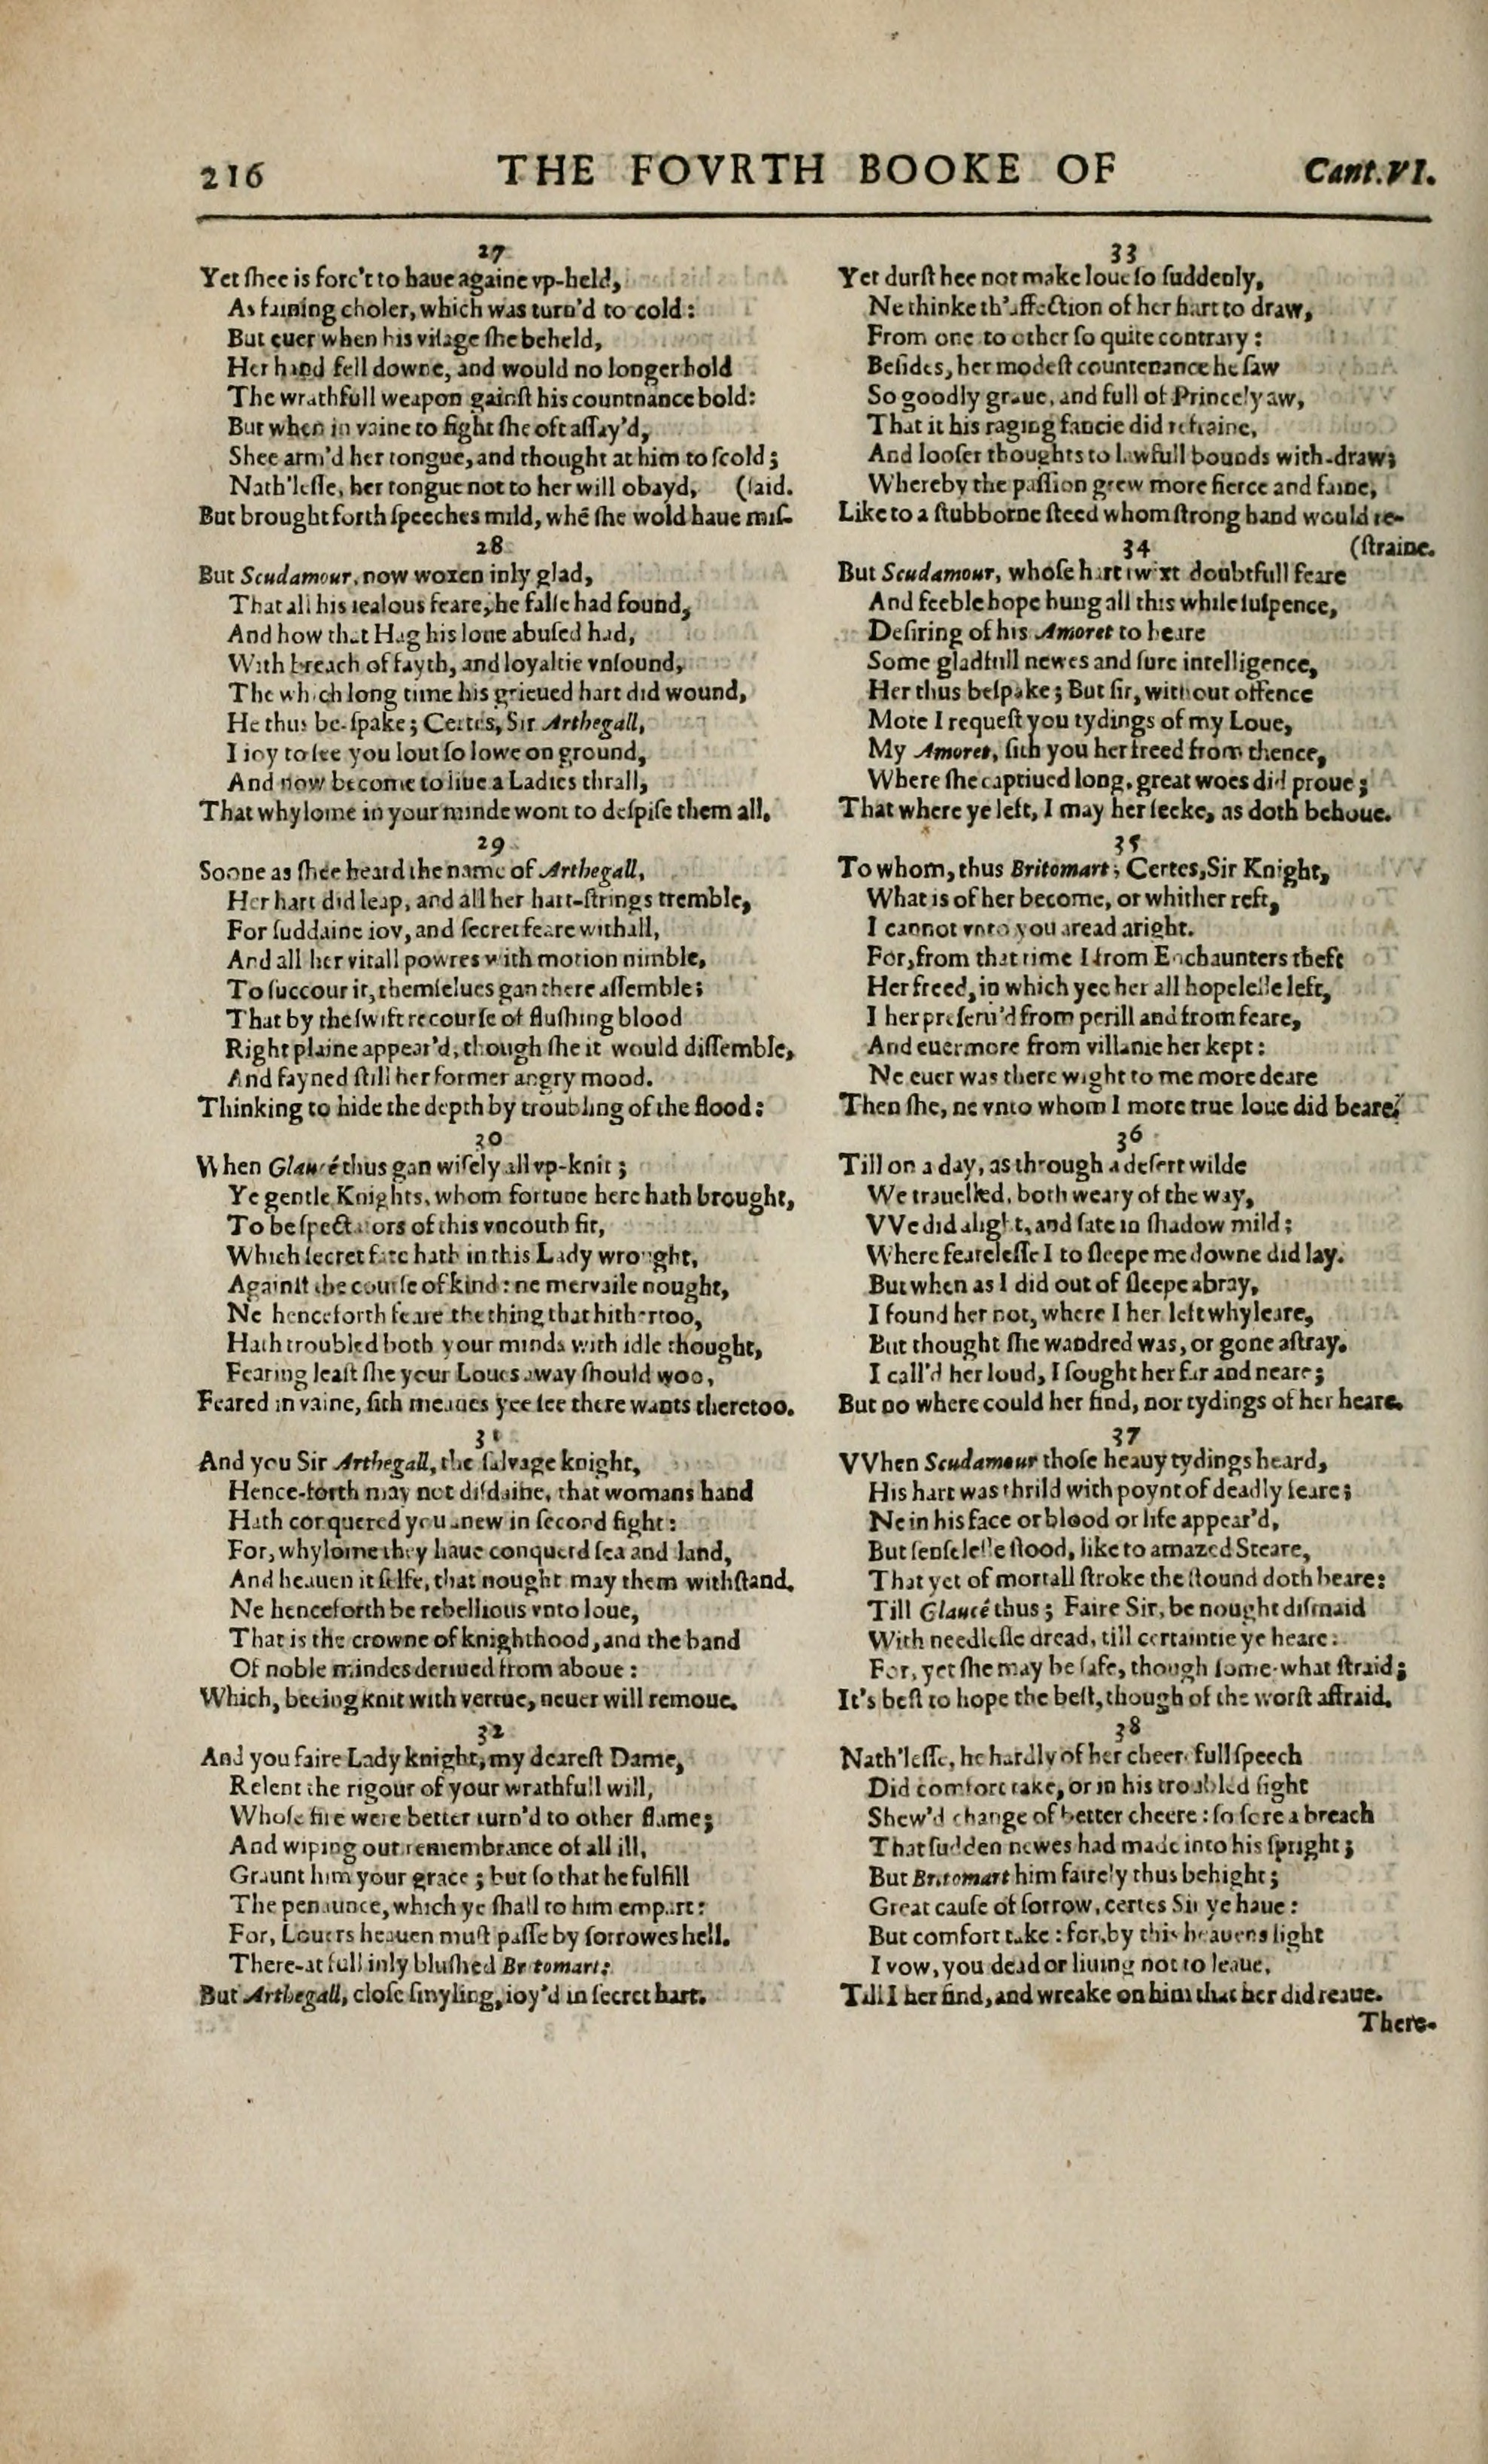 216 THE FOVRTH BOOKE OF Cant.VI.
27
Yet ſhee is forc't to haue againe vp-held,
As faining choler, which was turn'd to cold:
But euer when his viſage ſhe beheld,
Her hand fell downe, and would no longer hold
The wrathfull weapon gainſt his countnance bold:
But when in vaine to fight ſhe oft aſſay'd,
Shee arm'd her tongue, and thought at him to ſcold;
Nath'leſſe, her tongue not to her will obayd, (ſaid.
But brought forth ſpeeches mild, whē ſhe wold haue miſ-
28
But Scudamour, now woxen inly glad,
That all his iealous feare, he falſe had found,
And how that Hag his loue abuſed had,
With breach of fayth, and loyaltie vnſound,
The which long time his grieued hart did wound,
He thus be-ſpake; Certes, Sir Arthegall,
I ioy to ſee you lout ſo lowe on ground,
And now become to liue a Ladies thrall,
That whylome in your minde wont to deſpiſe them all.
29
Soone as ſhee heard the name of Arthegall,
Her hart did leap, and all her hart-ſtrings tremble,
For ſuddaine ioy, and ſecret feare withall,
And all her vitall powres with motion nimble,
To ſuccour it, themſelues gan there aſſemble;
That by the ſwift recourſe of fluſhing blood
Right plaine appear'd, though ſhe it would diſſemble,
And fayned ſtill her former angry mood.
Thinking to hide the depth by troubling of the flood:
30
When Glaucé thus gan wiſely all vp-knit;
Ye gentle Knights, whom fortune here hath brought,
To be ſpectators of this vncouth fit,
Which ſecret fate hath in this Lady wrought,
Againſt the courſe of kind: ne mervaile nought,
Ne henceforth feare the thing that hithertoo,
Hath troubled both your minds with idle thought,
Fearing leaſt ſhe your Loues away ſhould woo,
Feared in vaine, ſith meanes yee ſee there wants theretoo.
31
And you Sir Arthegall, the ſalvage knight,
Hence-forth may not diſdaine, that womans hand
Hath conquered you anew in ſecond fight:
For, whylome they haue conquerd ſea and land,
And heauen it ſelfe, that nought may them withſtand.
Ne henceforth be rebellious vnto loue,
That is the crowne of knighthood, and the band
Of noble mindes deriued from aboue:
Which, beeing knit with vertue, neuer will remoue.
32
And you faire Lady knight, my deareſt Dame,
Relent the rigour of your wrathfull will,
Whoſe fire were better turn'd to other flame;
And wiping out remembrance of all ill,
Graunt him your grace; but ſo that he fulfill
The penaunce, which ye ſhall to him empart:
For, Louers heauen muſt paſſe by ſorrowes hell.
There-at full inly bluſhed Britomart:
But Arthegall, cloſe ſmyling, ioy'd in ſecret hart.
33
Yet durſt hee not make loue ſo ſuddenly,
Ne thinke th'affection of her hart to draw,
From one to other ſo quite contrary:
Beſides, her modeſt countenance he ſaw
So goodly graue, and full of Princely aw,
That it his raging fancie did refraine,
And looſer thoughts to lawfull bounds with-draw;
Whereby the paſſion grew more fierce and faine,
Like to a ſtubborne ſteed whom ſtrong hand would re-
34 (ſtraine.
But Scudamour, whoſe hart twixt doubtfull feare
And feeble hope hung all this while ſuſpence,
Deſiring of his Amoret to heare
Some gladfull newes and ſure intelligence,
Her thus beſpake; But ſir, without offence
Mote I requeſt you tydings of my Loue,
My Amoret, ſith you her freed from thence,
Where ſhe captiued long, great woes did proue;
That where ye left, I may her ſeeke, as doth behoue.
35
To whom, thus Britomart; Certes, Sir Knight,
What is of her become, or whither reft,
I cannot vnto you aread aright.
For, from that time I from Enchaunters theft
Her freed, in which yee her all hopeleſſe left,
I her preſeru'd from perill and from feare,
And euermore from villanie her kept:
Ne euer was there wight to me more deare
Then ſhe, ne vnto whom I more true loue did beare.
36
Till on a day, as through a deſert wilde
We trauelled, both weary of the way,
VVe did alight, and ſate in ſhadow mild;
Where feareleſſe I to ſleepe me downe did lay.
But when as I did out of ſleepe abray,
I found her not, where I her left whyleare,
But thought ſhe wandred was, or gone aſtray.
I call'd her loud, I ſought her far and neare;
But no where could her find, nor tydings of her heare.
37
VVhen Scudamour thoſe heauy tydings heard,
His hart was thrild with poynt of deadly feare;
Ne in his face or blood or life appear'd,
But ſenſeleſſe ſtood, like to amazed Steare,
That yet of mortall ſtroke the ſtound doth beare:
Till Glaucé thus; Faire Sir, be nought diſmaid
With needleſſe dread, till certaintie ye heare:
For, yet ſhe may be ſafe, though ſome-what ſtraid;
It's beſt to hope the beſt, though of the worſt affraid.
38
Nath'leſſe, he hardly of her cheerefull ſpeech
Did comfort take, or in his troubled ſight
Shew'd change of better cheere: ſo ſore a breach
That ſudden newes had made into his ſpright;
But Britomart him fairely thus behight;
Great cauſe of ſorrow, certes Sir ye haue:
But comfort take: for, by this heauens light
I vow, you dead or liuing not to leaue,
Till I her find, and wreake on him that her did reaue.
There-